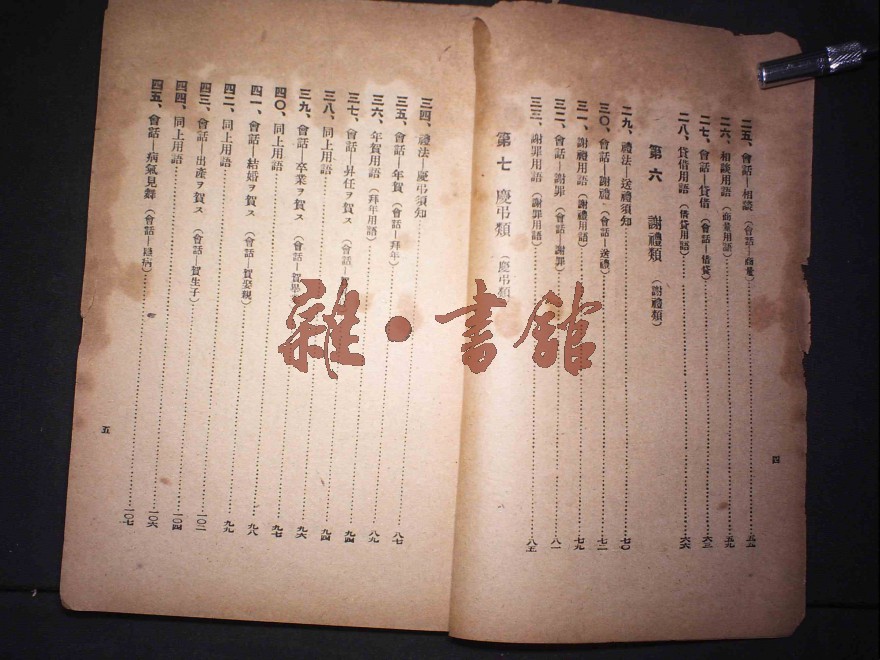 二五、會話—相談（會話—商量）……五五
二六、相談用語（商量用語）……五九
二七、會話—貸借（會話—借貸）……六三
二八、貸借用語（借貸用語）……六六
第六 謝禮類（謝禮類）
二九、禮法—送禮須知……七〇
三〇、會話—謝禮（會話—送禮）……七二
三一、謝禮用語（謝禮用語）……七九
三二、會話—謝罪（會話—謝罪）……八一
三三、謝罪用語（謝罪用語）……八五
第七 慶弔類（慶弔類）
四
三四、禮法—慶弔須知……八七
三五、會話—年賀（會話—拜年）……八九
三六、年賀用語（拜年用語）
三七、會話—昇任ヲ賀ス（會話—……九四
三八、同上用語……九四
三九、會話—卒業ヲ賀ス（會話—賀畢……九六
四〇、同上用語……九七
四一、會話—結婚ヲ賀ス（會話—賀娶親）……九八
四二、同上用語……九九
四三、會話—出產ヲ賀ス（會話—賀生子）……一〇二
四四、同上用語……一〇四
四五、會話—病氣見舞（會話—病）……一〇六
一〇七
五
雜·書館